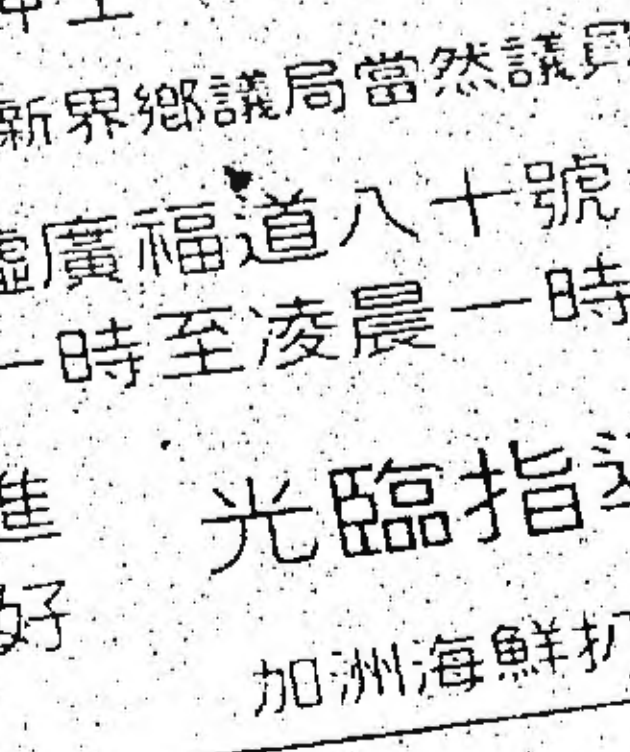 新界鄉議局當然議員
廣福道八十號
一時至凌晨一時
進 光臨指
好
加洲海鮮扒